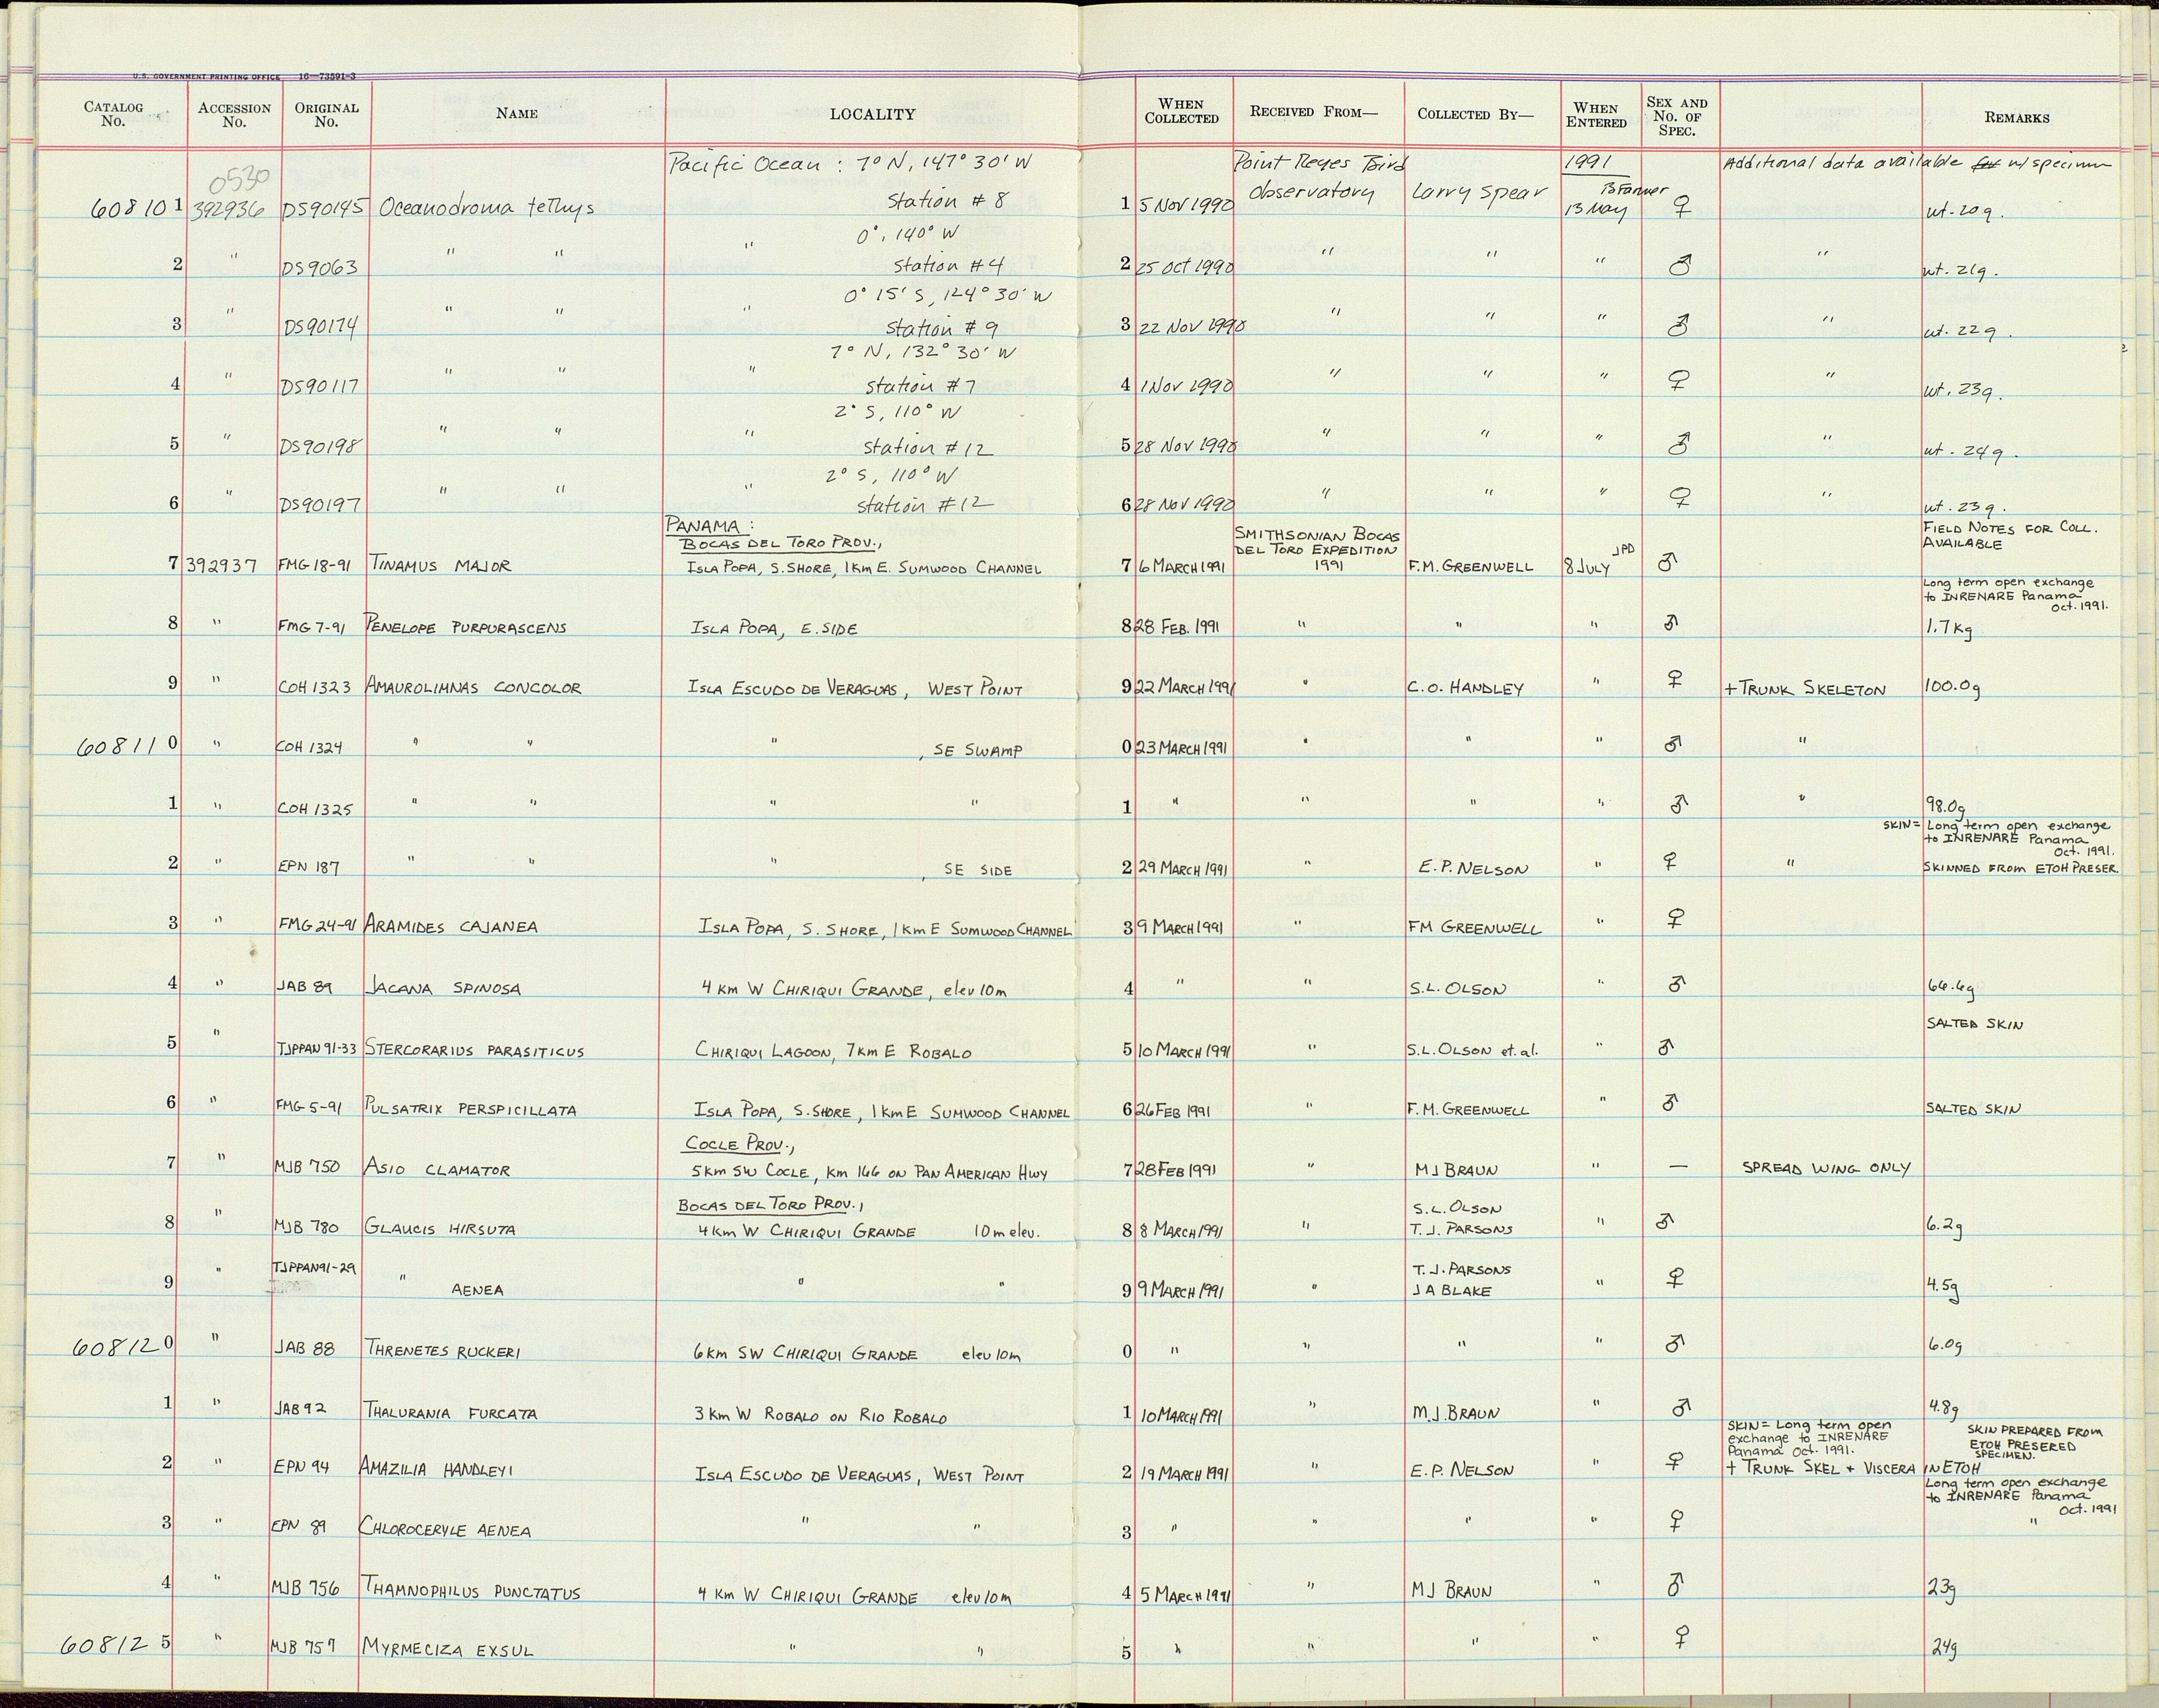 U.S. GOVERNMENT PRINTING OFFICE 16—73591-3
CATALOG No. ACCESSION No. ORIGINAL No. NAME LOCALITY WHEN COLLECTED RECEIVED FROM— COLLECTED BY— WHEN ENTERED SEX AND No. OF SPEC. REMARKS
Pacific Ocean : 7° N, 147° 30' W Point Reyes Bird 1991 Additional data available w/ specimen
0530 Observatory B Farmer
608101 392936 DS90145 Oceanodroma tethys Station # 8 1 5 Nov 1990 Larry Spear 13 May ♀ wt. 20g.
0°, 140° W
2 " DS9063 " " " Station #4 2 25 Oct 1990 " " " ♂ " wt. 21g.
0° 15' S, 124° 30' W
3 " DS90174 " " " Station # 9 3 22 Nov 1990 " " " ♂ " wt. 22g.
7° N, 132° 30' W
4 " DS90117 " " " Station #7 4 1 Nov 1990 " " " ♀ " wt. 23g.
2° S, 110° W
5 " DS90198 " " " Station #12 5 28 Nov 1990 " " " ♂ " wt. 24g.
2° S, 110° W
6 " DS90197 " " " Station #12 6 28 Nov 1990 " " " ♀ " wt. 23g.
PANAMA: SMITHSONIAN BOCAS FIELD NOTES FOR COLL.
BOCAS DEL TORO PROV., DEL TORO EXPEDITION JPD AVAILABLE
7 392937 FMG 18-91 TINAMUS MAJOR ISLA POPA, S. SHORE, 1 Km E. SUMWOOD CHANNEL 7 6 MARCH 1991 1991 F.M. GREENWELL 8 JULY ♂
Long term open exchange
to INRENARE Panama
Oct. 1991.
8 " FMG 7-91 PENELOPE PURPURASCENS ISLA POPA, E. SIDE 8 28 FEB. 1991 " " " ♂ 1.7 Kg
9 " COH 1323 AMAUROLIMNAS CONCOLOR ISLA ESCUDO DE VERAGUAS, WEST POINT 9 22 MARCH 1991 " C.O. HANDLEY " ♀ + TRUNK SKELETON 100.0g
608110 " COH 1324 " " " , SE SWAMP 0 23 MARCH 1991 " " " ♂ "
1 " COH 1325 " " " " 1 " " " " ♂ " 98.0g
SKIN = Long term open exchange
to INRENARE Panama
Oct. 1991.
2 " EPN 187 " " " , SE SIDE 2 29 MARCH 1991 " E.P. NELSON " ♀ " SKINNED FROM ETOH PRESER.
3 " FMG 24-91 ARAMIDES CAJANEA ISLA POPA, S. SHORE, 1 Km E SUMWOOD CHANNEL 3 9 MARCH 1991 " FM GREENWELL " ♀
4 " JAB 89 JACANA SPINOSA 4 Km W CHIRIQUI GRANDE, elev 10m 4 " " S.L. OLSON " ♂ 66.6g
SALTED SKIN
5 " TJPPAN 91-33 STERCORARIUS PARASITICUS CHIRIQUI LAGOON, 7 Km E ROBALO 5 10 MARCH 1991 " S.L. OLSON et. al. " ♂
6 " FMG 5-91 PULSATRIX PERSPICILLATA ISLA POPA, S. SHORE, 1 Km E SUMWOOD CHANNEL 6 26 FEB 1991 " F.M. GREENWELL " ♂ SALTED SKIN
COCLE PROV.,
7 " MJB 750 ASIO CLAMATOR 5 Km SW COCLE, Km 166 ON PAN AMERICAN HWY 7 28 FEB 1991 " MJ BRAUN " — SPREAD WING ONLY
BOCAS DEL TORO PROV., S.L. OLSON
8 " MJB 780 GLAUCIS HIRSUTA 4 Km W CHIRIQUI GRANDE 10 m elev. 8 8 MARCH 1991 " T.J. PARSONS " ♂ 6.2g
TJPPAN 91-29 T.J. PARSONS
9 " " AENEA " " 9 9 MARCH 1991 " J A BLAKE " ♀ 4.5g
608120 " JAB 88 THRENETES RUCKERI 6 Km SW CHIRIQUI GRANDE elev 10m 0 " " " " ♂ 6.0g
1 " JAB 92 THALURANIA FURCATA 3 Km W ROBALO ON RIO ROBALO 1 10 MARCH 1991 " M.J. BRAUN " ♂ 4.8g
SKIN = Long term open SKIN PREPARED FROM
exchange to INRENARE ETOH PRESERED
Panama Oct. 1991. SPECIMEN.
2 " EPN 94 AMAZILIA HANDLEYI ISLA ESCUDO DE VERAGUAS, WEST POINT 2 19 MARCH 1991 " E.P. NELSON " ♀ + TRUNK SKEL + VISCERA IN ETOH
Long term open exchange
to INRENARE Panama
Oct. 1991
3 " EPN 89 CHLOROCERYLE AENEA " " 3 " " " " ♀ "
4 " MJB 756 THAMNOPHILUS PUNCTATUS 4 Km W CHIRIQUI GRANDE elev 10m 4 5 MARCH 1991 " MJ BRAUN " ♂ 23g
608125 " MJB 757 MYRMECIZA EXSUL " " 5 " " " " ♀ 24g